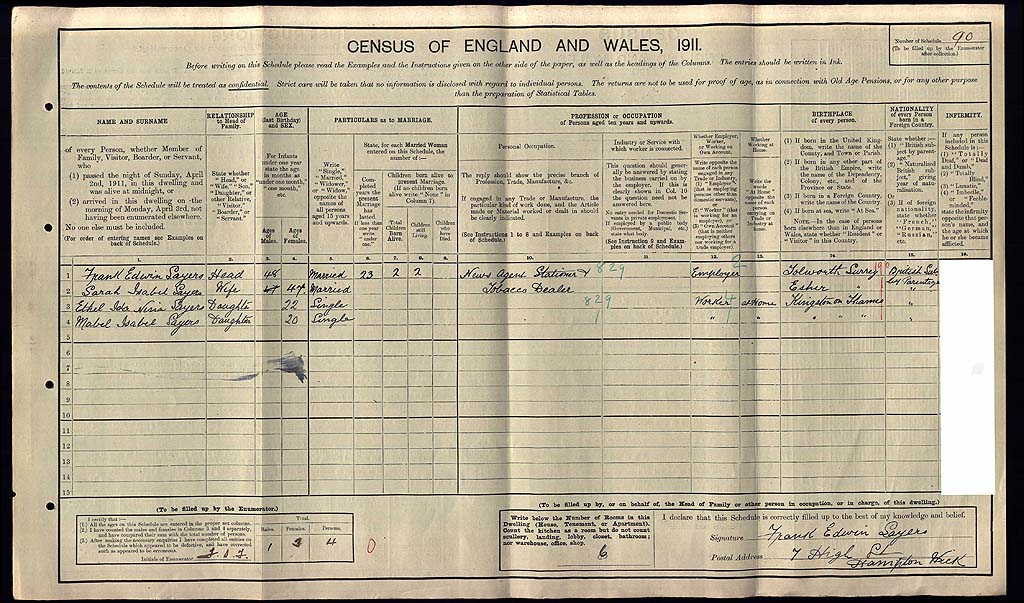 CENSUS OF ENGLAND AND WALES, 1911.
Number of Schedule 90
(To be filled up by the Enumerator after collection.)
Before writing on this Schedule please read the Examples and the Instructions given on the other side of the paper, as well as the headings of the Columns. The entries should be written in Ink.
The contents of the Schedule will be treated as confidential. Strict care will be taken that no information is disclosed with regard to individual persons. The returns are not to be used for proof of age, as in connection with Old Age Pensions, or for any other purpose
than the preparation of Statistical Tables.
NAME AND SURNAME
of every Person, whether Member of
Family, Visitor, Boarder, or Servant,
who
(1) passed the night of Sunday, April
2nd, 1911, in this dwelling and
was alive at midnight, or
(2) arrived in this dwelling on the
morning of Monday, April 3rd, not
having been enumerated elsewhere.
No one else must be included.
(For order of entering names see Examples on
back of Schedule.)
RELATIONSHIP
to Head of
Family.
State whether
"Head," or
"Wife," "Son,"
"Daughter," or
other Relative,
"Visitor,"
"Boarder," or
"Servant."
AGE
(last Birthday)
and SEX.
For Infants
under one year
state the age
in months as
"under one month,"
"one month,"
etc.
Ages of Males.
Ages of Females.
PARTICULARS as to MARRIAGE.
Write
"Single,"
"Married,"
"Widower,"
or "Widow,"
opposite the
names of all
persons
aged 15 years
and upwards.
State, for each Married Woman
entered on this Schedule, the
number of:—
Children born alive to
present Marriage.
(If no children
born alive write "None" in
Column 7).
Total Children Born Alive.
Children still Living.
Children who have Died.
PROFESSION or OCCUPATION
of Persons aged ten years and upwards.
Personal Occupation.
The reply should show the precise branch of
Profession, Trade, Manufacture, &c.
If engaged in any Trade or Manufacture, the
particular kind of work done, and the Article
made or Material worked or dealt in should
be clearly indicated.
(See Instructions 1 to 8 and Examples on back
of Schedule.)
Industry or Service with
which worker is connected.
This question should gener-
ally be answered by stating
the business carried on by
the employer. If this is
clearly shown in Col. 10
the question need not be
answered here.
No entry needed for Domestic Servants
in private employment.
(See Instruction 9 and Exam-
ples on back of Schedule.)
Whether Employer,
Worker,
or Working on
Own Account.
Whether Working at Home.
BIRTHPLACE
of every person.
(1) If born in the United King-
dom, write the name of the
County, and Town or Parish.
(2) If born in any other part of
the British Empire, write
the name of the Dependency,
Colony, etc., and of the
Province or State.
(3) If born in a Foreign Country,
write the name of the Country.
(4) If born at sea, write "At Sea."
NOTE.—In the case of persons
born elsewhere than in England or
Wales, state whether "Resident" or
"Visitor" in this Country.
NATIONALITY
of every Person
born in a
Foreign Country.
INFIRMITY.
1 Frank Edwin Sayers Head 48 Married 23 2 2 News Agent Stationer & 829 Employer Tolworth Surrey British Sub
2 Sarah Isabel Sayers Wife 47 Married Tobacco Dealer Esher " by Parentage
3 Ethel Ida Nina Sayers Daughter 22 Single 829 Worker at Home Kingston on Thames "
4 Mabel Isabel Sayers Daughter 20 Single " " " " " "
5
6
7
8
9
10
11
12
13
14
15
(To be filled up by the Enumerator.)
I certify that:—
(1.) All the ages on this Schedule are entered in the proper sex columns.
(2.) I have counted the males and females in Columns 3 and 4 separately,
and have compared their sum with the total number of persons.
(3.) After making the necessary enquiries I have completed all entries on
the Schedule which appeared to be defective, and have corrected
such as appeared to be erroneous.
Initials of Enumerator
Total.
Males. Females. Persons.
1 3 4
0
(To be filled up by, or on behalf of, the Head of Family or other person in occupation, or in charge, of this dwelling.)
Write below the Number of Rooms in this
Dwelling (House, Tenement, or Apartment).
Count the kitchen as a room but do not count
scullery, landing, lobby, closet, bathroom;
nor warehouse, office, shop.
6
I declare that this Schedule is correctly filled up to the best of my knowledge and belief.
Signature Frank Edwin Sayer
Postal Address 7 High St
Hampton Wick